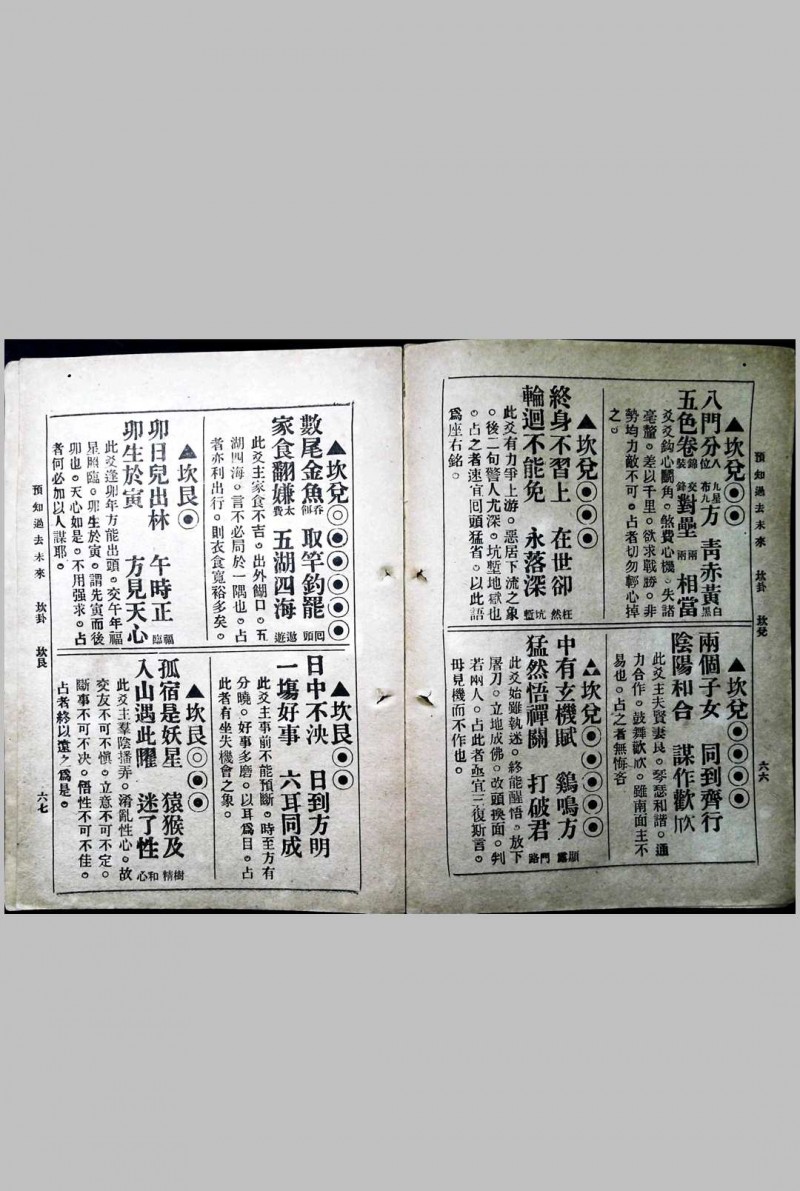 預知過去未來 坎卦 坎兌 六六
▲坎兌◉◉
八門分八位 九星布九方 青赤黃白黑
五色卷錦裝 交鋒對壘兩 兩相當
爻爻鈎心鬭角。煞費心機。失諸
毫釐。差以千里。欲求戰勝。非
勢均力敵不可。占者切勿輕心掉
之。
▲坎兌◉◉◉
終身不習上 在世卻枉然
輪迴不能免 永落深坑塹
此爻有力爭上游。惡居下流之象
。後二句警人尤深。坑塹地獄也
。占之者速宜回頭猛省。以此語
爲座右銘。
▲坎兌◉◉◉◉
兩個子女 同到齊行
陰陽和合 謀作歡欣
此爻主夫賢妻良。琴瑟和諧。通
力合作。鼓舞歡欣。雖南面王不
易也。占之者無悔吝
▲坎兌◉◉◉◉◉
中有玄機賦 鷄鳴方顯露
猛然悟禪關 打破君門路
此爻始雖執迷。終能醒悟。放下
屠刀。立地成佛。改頭換面。判
若兩人。占此者亟宜三復斯言。
毋見機而不作也。
▲坎兌◎◉◉◉◉◉
數尾金魚吞餌 取竿釣罷回頭
家食翻嫌太費 五湖四海遨遊
此爻主家食不吉。出外餬口。五
湖四海。言不必局於一隅也。占
者亦利出行。則衣食寬裕多矣。
▲坎艮◉
卯日兒出林 午時正福臨
卯生於寅 方見天心
此爻逢卯年方能出頭。交午年福
星照臨。卯生於寅。謂先寅而後
卯也。天心如是。不用强求。占
者何必加以人謀耶。
▲坎艮◉◉
日中不泱 日到方明
一塲好事 六耳同成
此爻主事前不能預斷。時至方有
分曉。好事多磨。以耳爲目。占
此者有坐失機會之象。
▲坎艮◎◉◉
孤宿是妖星 猿猴及樹精
入山遇此曜 迷了性和心
此爻主羣陰播弄。淆亂性心。故
交友不可不愼。立意不可不定。
斷事不可不决。悟性不可不佳。
占者終以遠之爲是。
預知過去未來 坎卦 坎艮 六七